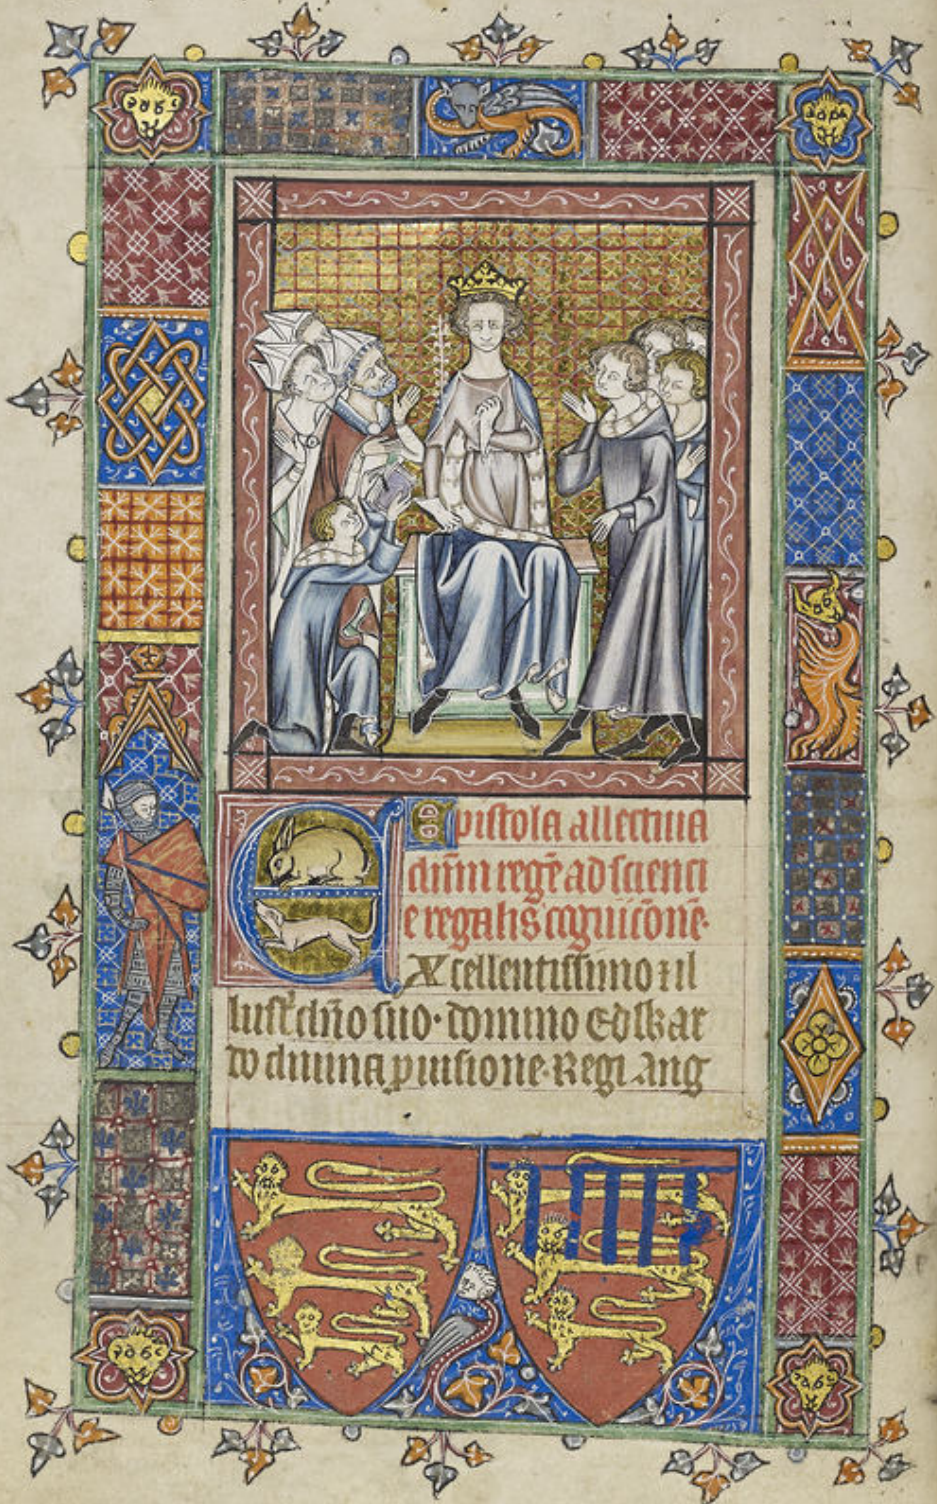 Epistola allectiua
dn̄m regē ad scienci
e regalis cognicōne·
EXcellentissimo ⁊ il
lustͬ dn̄o suo· domino Edwar
do diuina ꝓuisione· Regi Ang